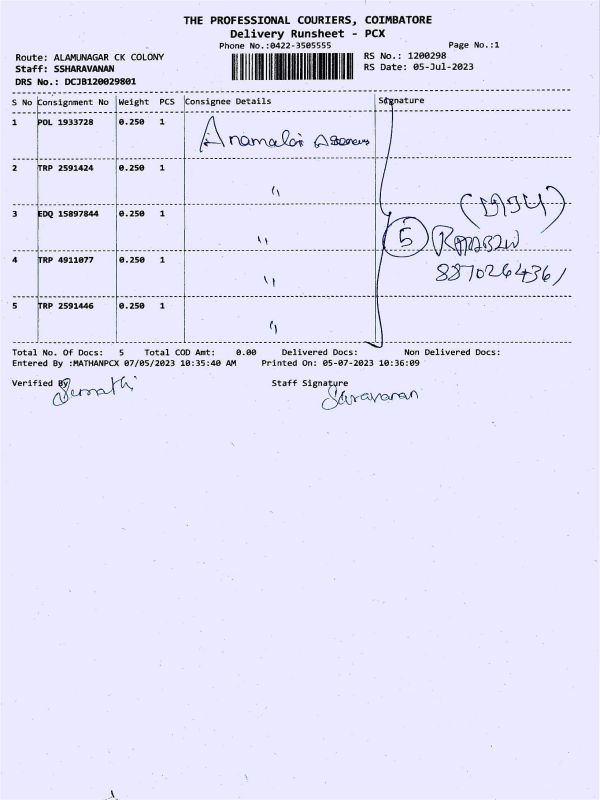 THE PROFESSIONAL COURIERS, COIMBATORE
Delivery Runsheet - PCX
Phone No.:0422-3505555
Page No.:1
Route: ALAMUNAGAR CK COLONY
RS No.: 1200298
Staff: SSHARAVANAN
RS Date: 05-Jul-2023
DRS No.: DCJB120029801
S No Consignment No Weight PCS Consignee Details Signature
1 POL 1933728 0.250 1 Anamalai
2 TRP 2591424 0.250 1 "
3 EDQ 15897844 0.250 1 "
5
4 TRP 4911077 0.250 1 "
8870264361
5 TRP 2591446 0.250 1 "
Total No. Of Docs: 5 Total COD Amt: 0.00 Delivered Docs: Non Delivered Docs:
Entered By :MATHANPCX 07/05/2023 10:35:40 AM Printed On: 05-07-2023 10:36:09
Verified By Sumathi
Staff Signature Sharavanan